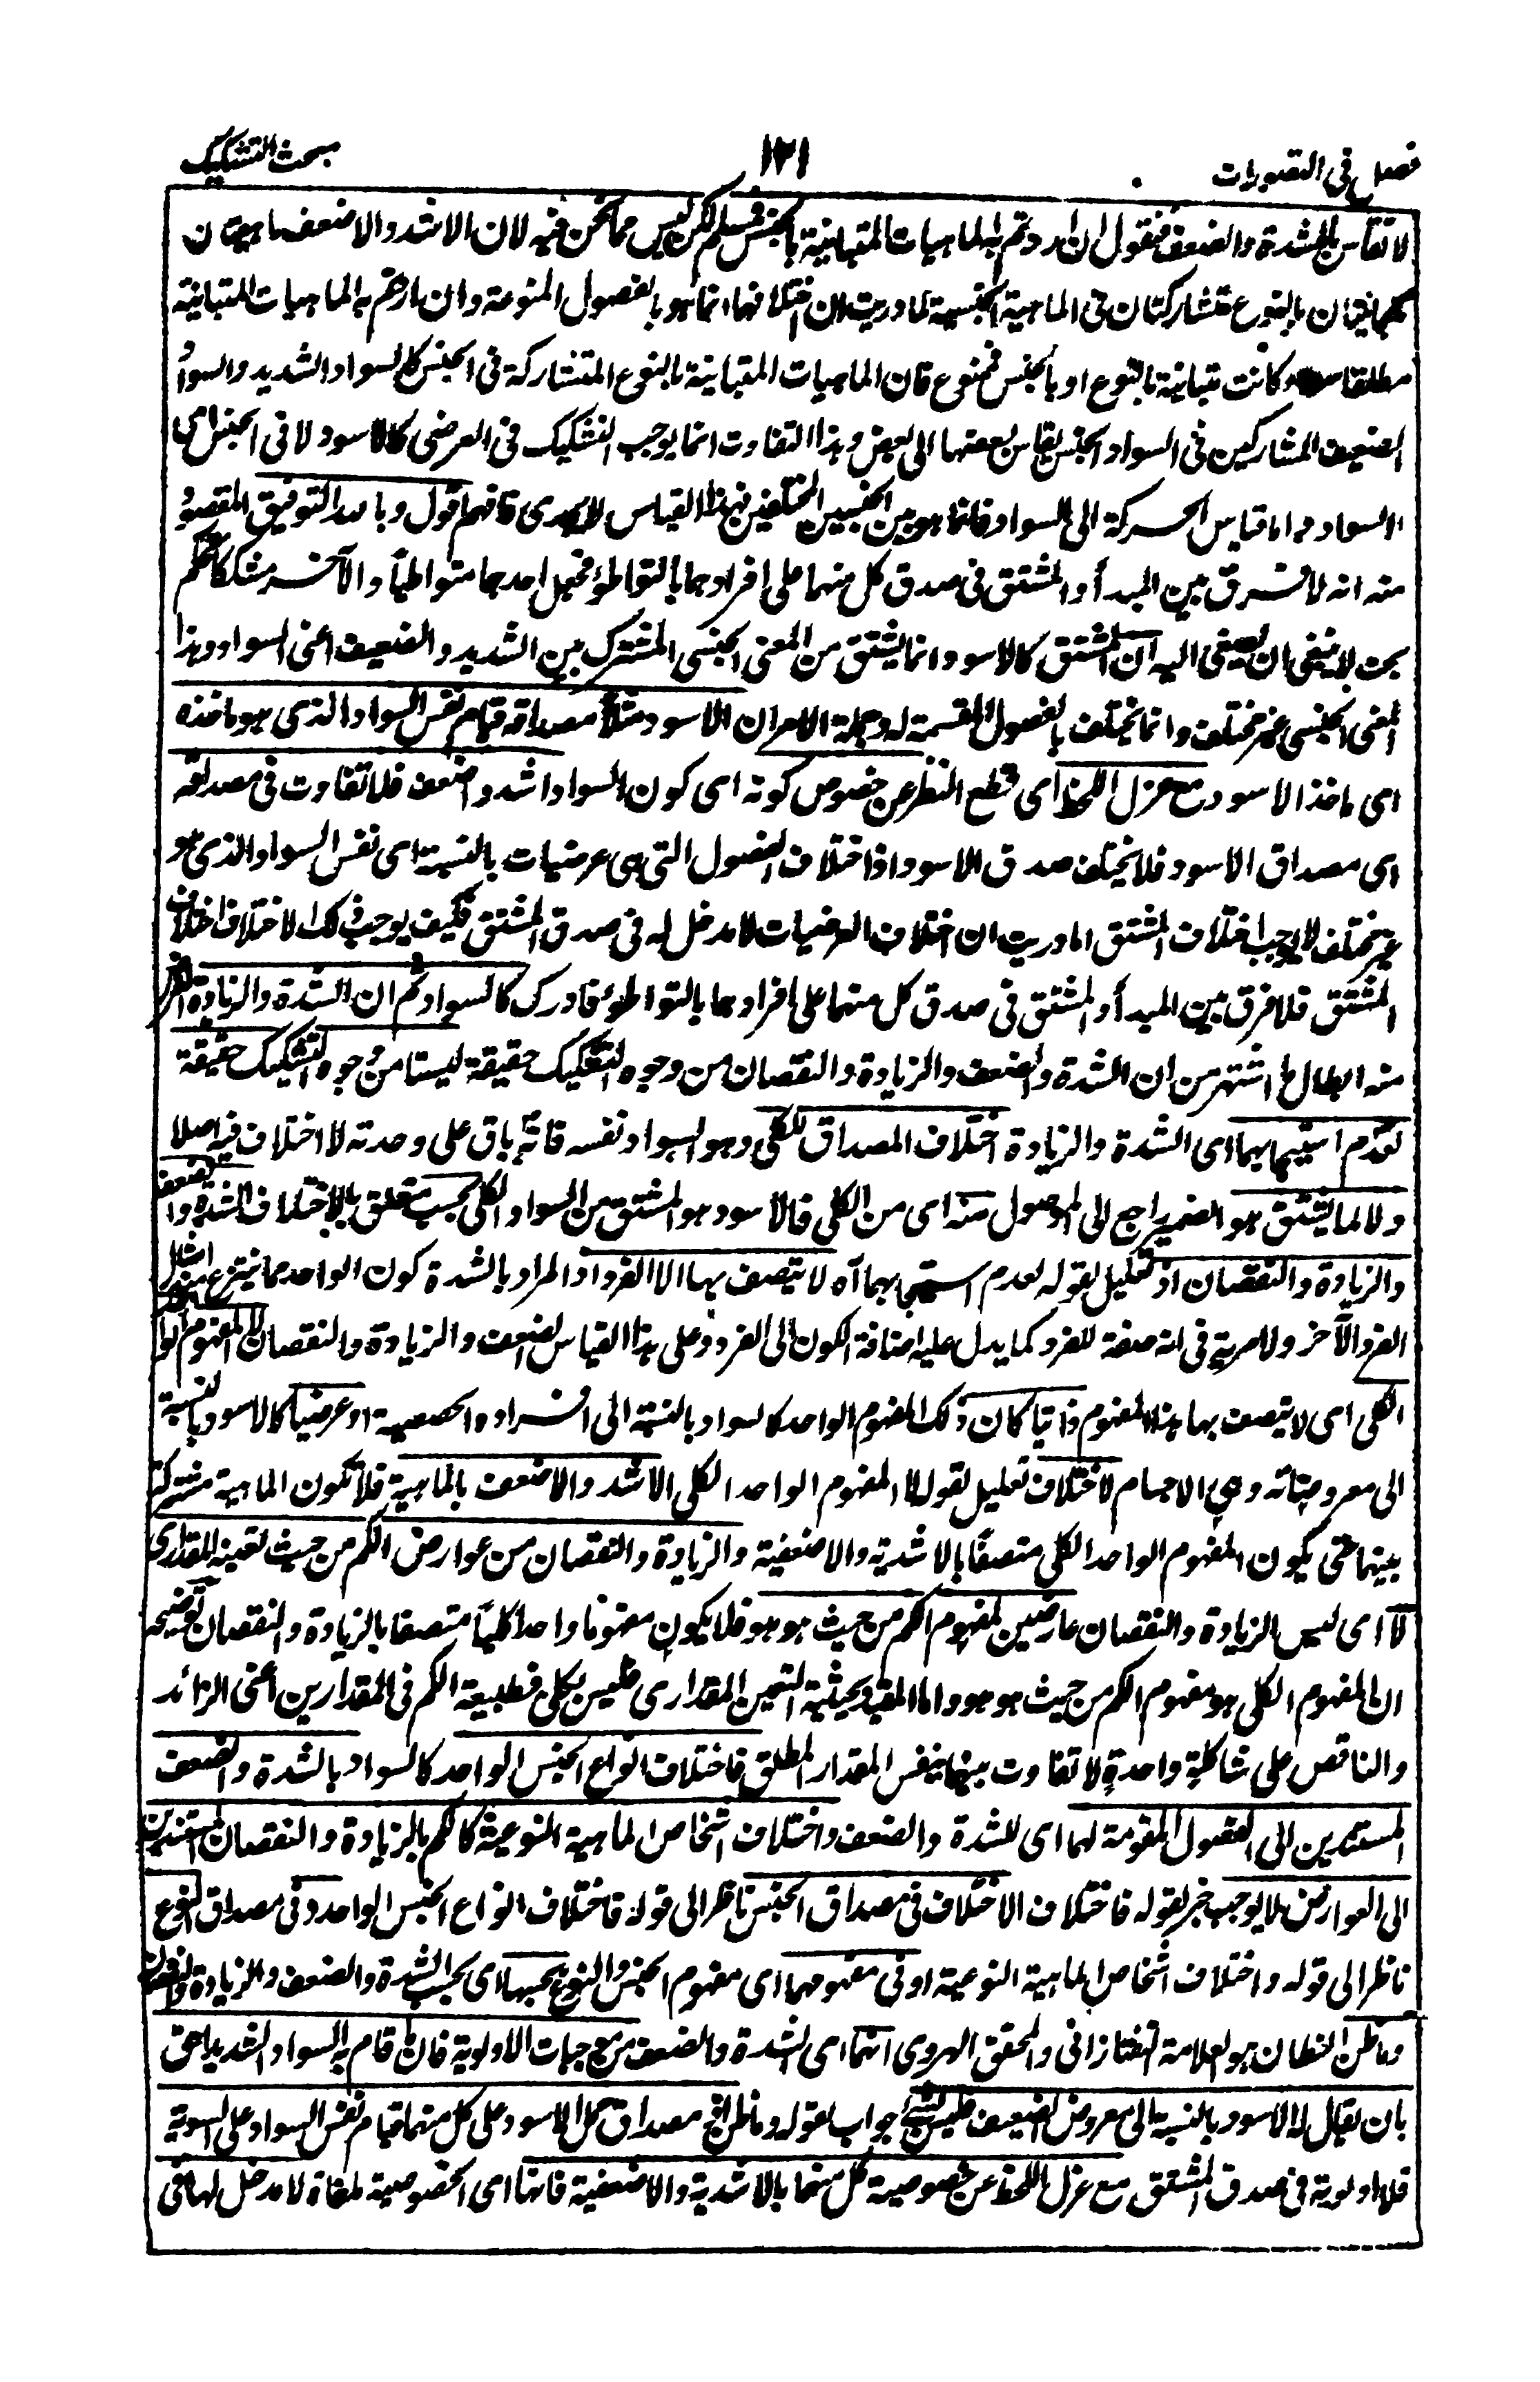 فصل فى التصورات
١٢١
مبحث التشكيك
لا تقاس بالشدة والضعف فنقول ان اردتم به الماهيات المتباينة بالجنس فمسلم لكن ليس مما نحن فيه لان الاشد والاضعف ماهيتان
متباينتان بالنوع متشاركتان فى الماهية الجنسية لما دريت ان اختلافهما انما هو بالفصول المنوعة وان اردتم به الماهيات المتباينة
مطلقا سواء كانت متباينة بالنوع او بالجنس فممنوع فان الماهيات المتباينة بالنوع المتشاركة فى الجنس كالسواد الشديد والسواد
الضعيف المشاركين فى السواد الجنس يقاس بعضها الى بعض وهذا التفاوت انما يوجب التشكيك فى العرضى كالاسود لا فى الجنس اى
السواد واما قياس الحركة الى السواد فانما هو بين الجنسين المختلفين فهذا القياس لا يجدى فافهم اقول وبالله التوفيق المقصود
منه انه لا فرق بين المبدأ والمشتق فى صدق كل منهما على افرادهما بالتواطؤ فجعل احدهما متواطيا والآخر مشككا تحكم
بحت لا ينبغى ان يصغى اليه ان المشتق كالاسود انما يشتق من المعنى الجنسى المشترك بين الشديد والضعيف اعنى السواد وهذا
المعنى الجنسى غير مختلف وانما يختلف بالفصول المقسمة له وجملة الامر ان الاسود مثلاً مصداقه قيام نفس السواد الذى هو ماخذه
اى ماخذ الاسود مع عزل اللحظ اى قطع النظر عن خصوص كونه اى كون السواد اشد واضعف فلا تفاوت فى مصداقه
اى مصداق الاسود فلا يختلف صدق الاسود اذا ختلاف الفصول التى هى عرضيات بالنسبة اى نفس السواد الذى هو
غير مختلف لا يوجب اختلاف المشتق اما دريت ان اختلاف العرضيات لا مدخل له فى صدق المشتق فكيف يوجب ذلك الاختلاف اختلاف
المشتق فلا فرق بين المبدأ والمشتق فى صدق كل منهما على افرادهما بالتواطؤ فادرك كالسواد ثم ان الشدة والزيادة الغرض
منه ابطال ما اشتهر من ان الشدة والضعف والزيادة والنقصان من وجوه التشكيك حقيقة ليستا من وجوه التشكيك حقيقة
لعدم بهما اى الشدة والزيادة اختلاف المصداق للكلى وهو السواد نفسه فانه باق على وحدته لا اختلاف فيه اصلا
ولا لما يشتق هو الضمير راجع الى الموصول منه اى من الكلى فالاسود هو المشتق من السواد الكلى بحسب متعلق بالاختلاف الشدة والضعف
والزيادة والنقصان اذ تعليل لقوله لعدم بهما آه لا يتصف بها الا الفرد اذ المراد بالشدة كون الواحد مما ينتزع عنه امثال
الفرد الآخر ولا مرية فى انه صفة للفرد كما يدل عليه اضافة الكون الى الفرد وعلى هذا القياس الضعف والزيادة والنقصان لا المفهوم الواحد
الكلى اى لا يتصف بها هذا المفهوم ذاتيا كان ذلك المفهوم الواحد كالسواد بالنسبة الى افراده الحصصية او عرضيا كالاسود بالنسبة
الى معروضاته وهى الاجسام لاختلاف تعليل لقوله لا المفهوم الواحد الكلى الاشد والاضعف بالماهية فلا تكون الماهية مشتركة
بينهما حتى يكون المفهوم الواحد الكلى متصفا بالاشدية والاضعفية والزيادة والنقصان من عوارض الكم من حيث تعينه المقدارى
لا اى ليس الزيادة والنقصان عارضين لمفهوم الكم من حيث هو هو فلا يكون مفهوما واحدا كليا متصفا بالزيادة والنقصان توضيحه
ان المفهوم الكلى هو مفهوم الكم من حيث هو هو واما المقيد بحيثية التعين المقدارى فليس بكلى فطبيعة الكم فى المقدارين اعنى الزائد
والناقص على شاكلةٍ واحدةٍ لا تفاوت بينهما بنفس المقدار المطلق فاختلاف انواع الجنس الواحد كالسواد بالشدة والضعف
المستندين الى الفصول المقومة لهما اى للشدة والضعف واختلاف اشخاص الماهية النوعية كالكم بالزيادة والنقصان المستندين
الى العوارض لا يوجب خبر لقوله فاختلاف الاختلاف فى مصداق الجنس ناظر الى قوله فاختلاف انواع الجنس الواحد وفى مصداق النوع
ناظر الى قوله واختلاف اشخاص الماهية النوعية او فى مفهومهما اى مفهوم الجنس والنوع بحسبها اى بحسب الشدة والضعف والزيادة والنقصان
وما ظن الظان هو العلامة التفتازانى والمحقق الهروى انهما اى الشدة والضعف من موجبات الاولوية فان ما قام به السواد الشديد احق
بان يقال له الاسود بالنسبة الى معروض الضعيف فليس بشئ جواب لقوله وما ظن الخ مصداق حمل الاسود على كل منهما قيام نفس السواد على السوية
فلا اولوية فى صدق المشتق مع عزل اللحظ عن خصوصية كل منهما بالاشدية والاضعفية فانها اى الخصوصية ملغاة لا مدخل لها فى